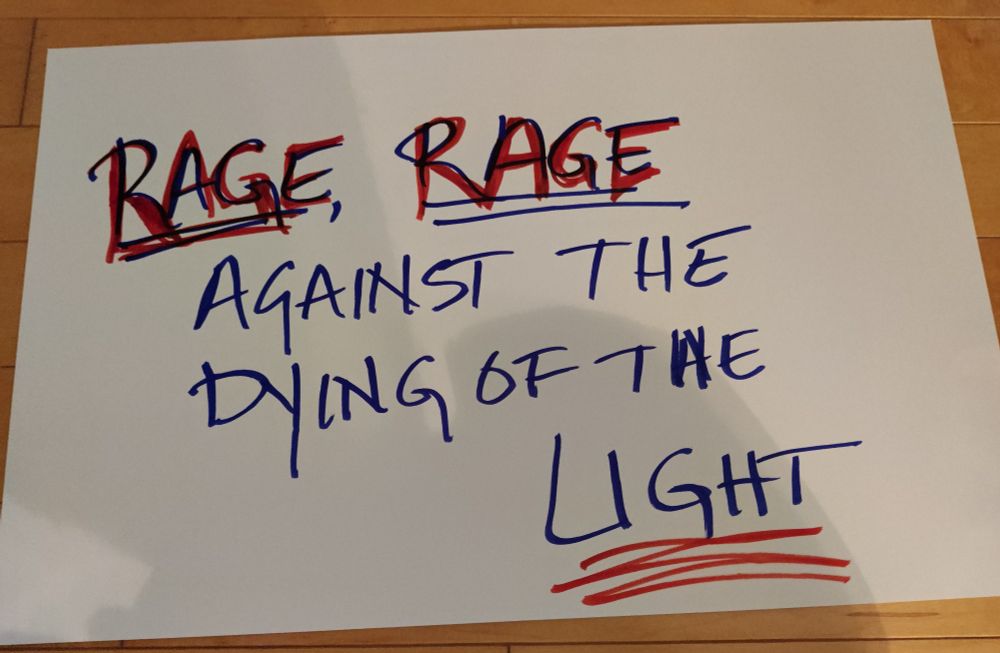 RAGE, RAGE
AGAINST THE
DYING OF THE
LIGHT